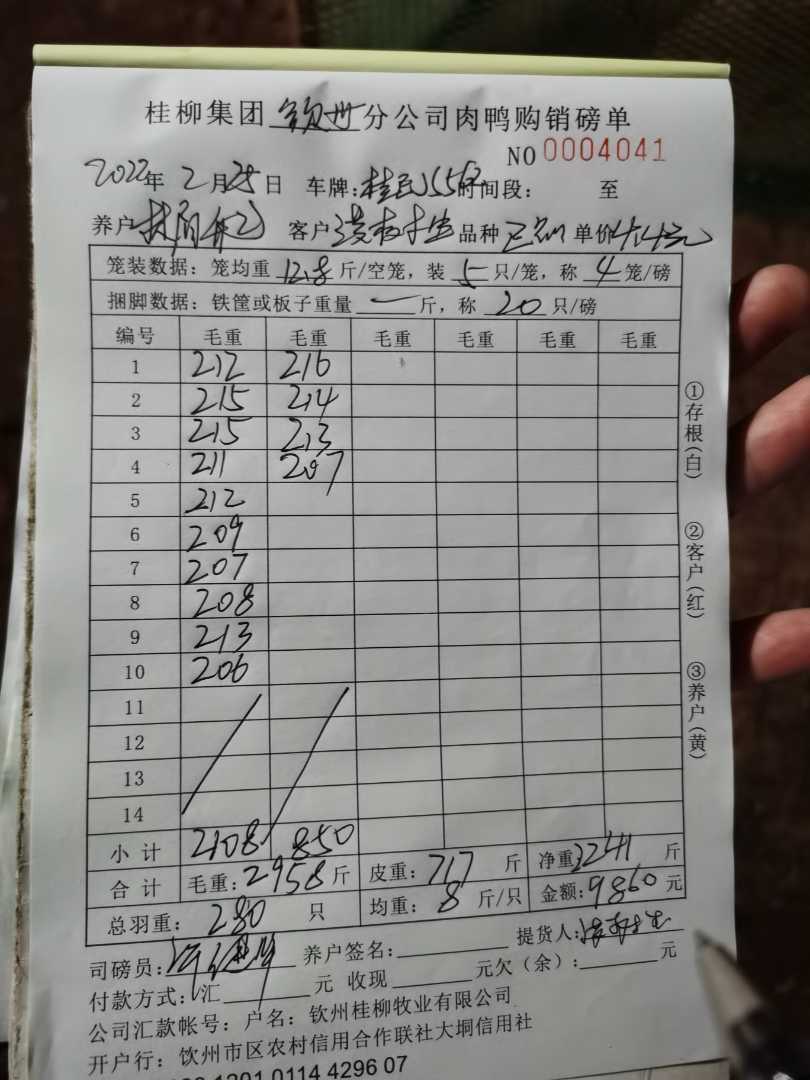 桂柳集团 钦州 分公司肉鸭购销磅单
NO 0004041
2022年 2月25日 车牌: 时间段: 至
养户 客户 品种 单价4.4元
笼装数据: 笼均重 12.8 斤/空笼, 装 5 只/笼, 称 4 笼/磅
捆脚数据: 铁筐或板子重量 一 斤, 称 20 只/磅
编号 毛重 毛重 毛重 毛重 毛重 毛重
1 212 216
2 215 214
3 215 213
4 211 207
5 212
6 209
7 207
8 208
9 213
10 206
11
12
13
14
小计 2108 850
合计 毛重: 2958 斤 皮重: 717 斤 净重 2241 斤
总羽重: 280 只 均重: 8 斤/只 金额: 9860 元
司磅员: 养户签名: 提货人:
付款方式: 汇 元 收现 元欠(余): 元
公司汇款帐号: 户名: 钦州桂柳牧业有限公司
开户行: 钦州市区农村信用合作联社大垌信用社
1201 0114 4296 07
①存根(白)
②客户(红)
③养户(黄)